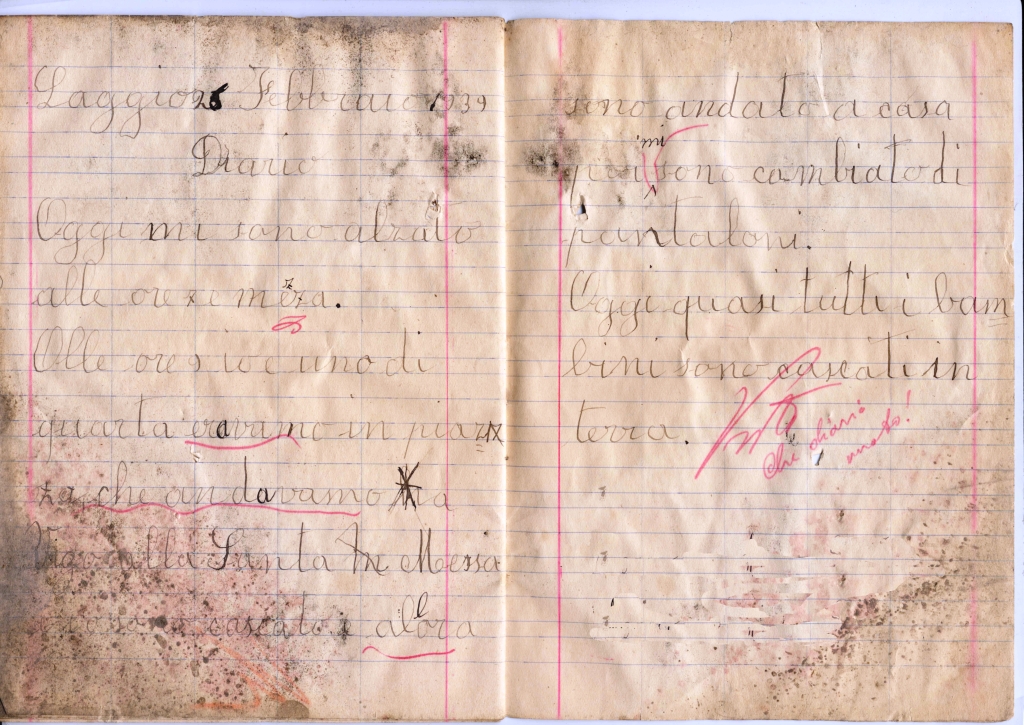 Laggio 26 Febbraio 1939
Diario
Oggi mi sono alzato
alle ore e meza.
z
Olle ore e uno di
quarta eravamo in piaz
za, che andavamo a
Vigo alla Santa Messa
cascato e albora
l
sono andato a casa
mi
poi sono cambiato di
pantaloni.
Oggi quasi tutti i bam
bini sono cascati in
terra.
che diario